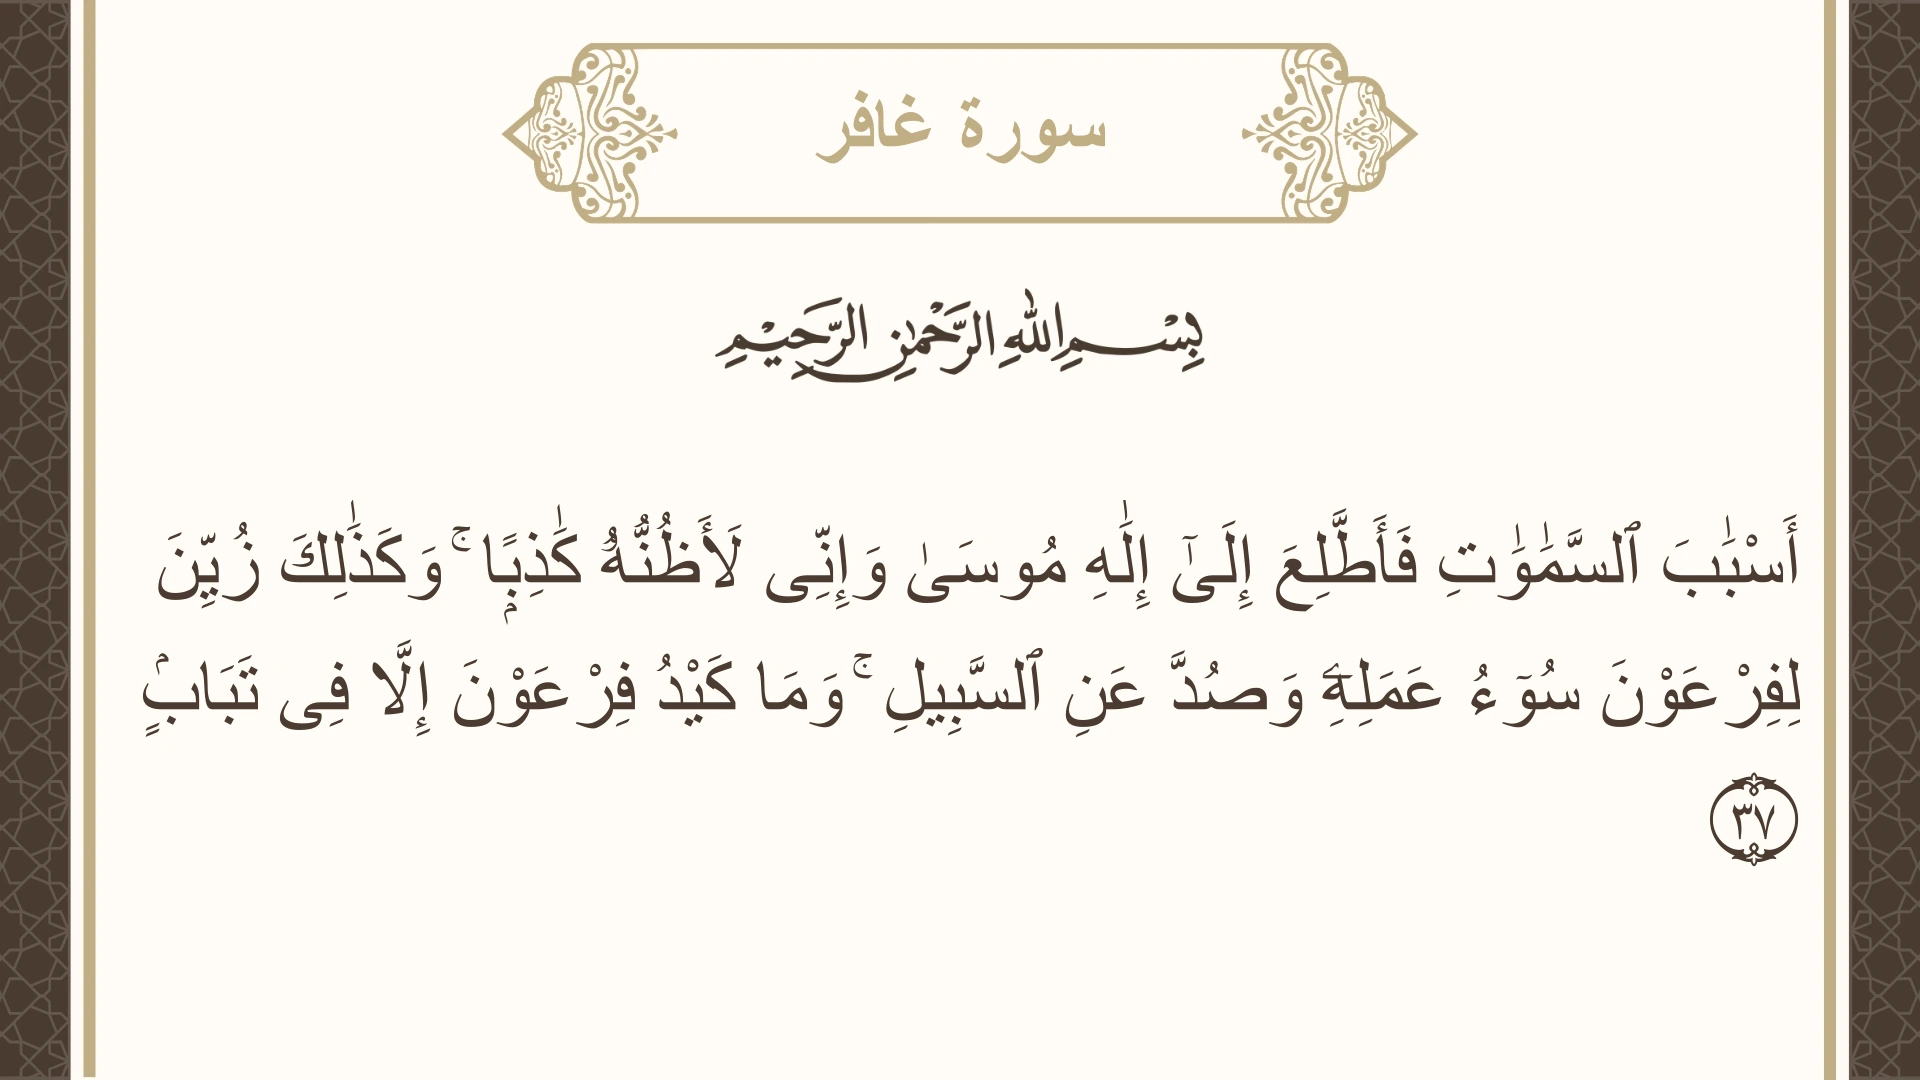 سورة غافر
بِسْمِ اللهِ الرَّحْمٰنِ الرَّحِيْمِ
أَسْبَٰبَ ٱلسَّمَٰوَٰتِ فَأَطَّلِعَ إِلَىٰٓ إِلَٰهِ مُوسَىٰ وَإِنِّى لَأَظُنُّهُۥ كَٰذِبًۭا ۚ وَكَذَٰلِكَ زُيِّنَ
لِفِرْعَوْنَ سُوٓءُ عَمَلِهِۦ وَصُدَّ عَنِ ٱلسَّبِيلِ ۚ وَمَا كَيْدُ فِرْعَوْنَ إِلَّا فِى تَبَابٍۢ
٣٧